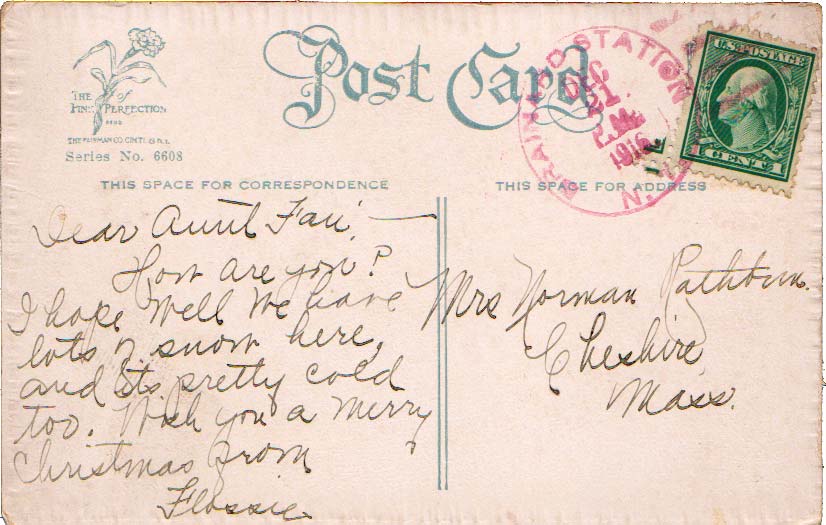 THE of
PINK PERFECTION
THE FAIRMAN CO. CIN'TI. & N.Y.
Series No. 6608
Post Card
STATION
DEC
21
P.M.
1916
N.Y.
U.S. POSTAGE
1 CENT 1
THIS SPACE FOR CORRESPONDENCE
THIS SPACE FOR ADDRESS
Dear Aunt Fan,
How are you?
I hope well We have
lots of snow here,
and its pretty cold
too. Wish you a merry
Christmas from
Flossie
Mrs Norman Rathbun.
Cheshire,
Mass.